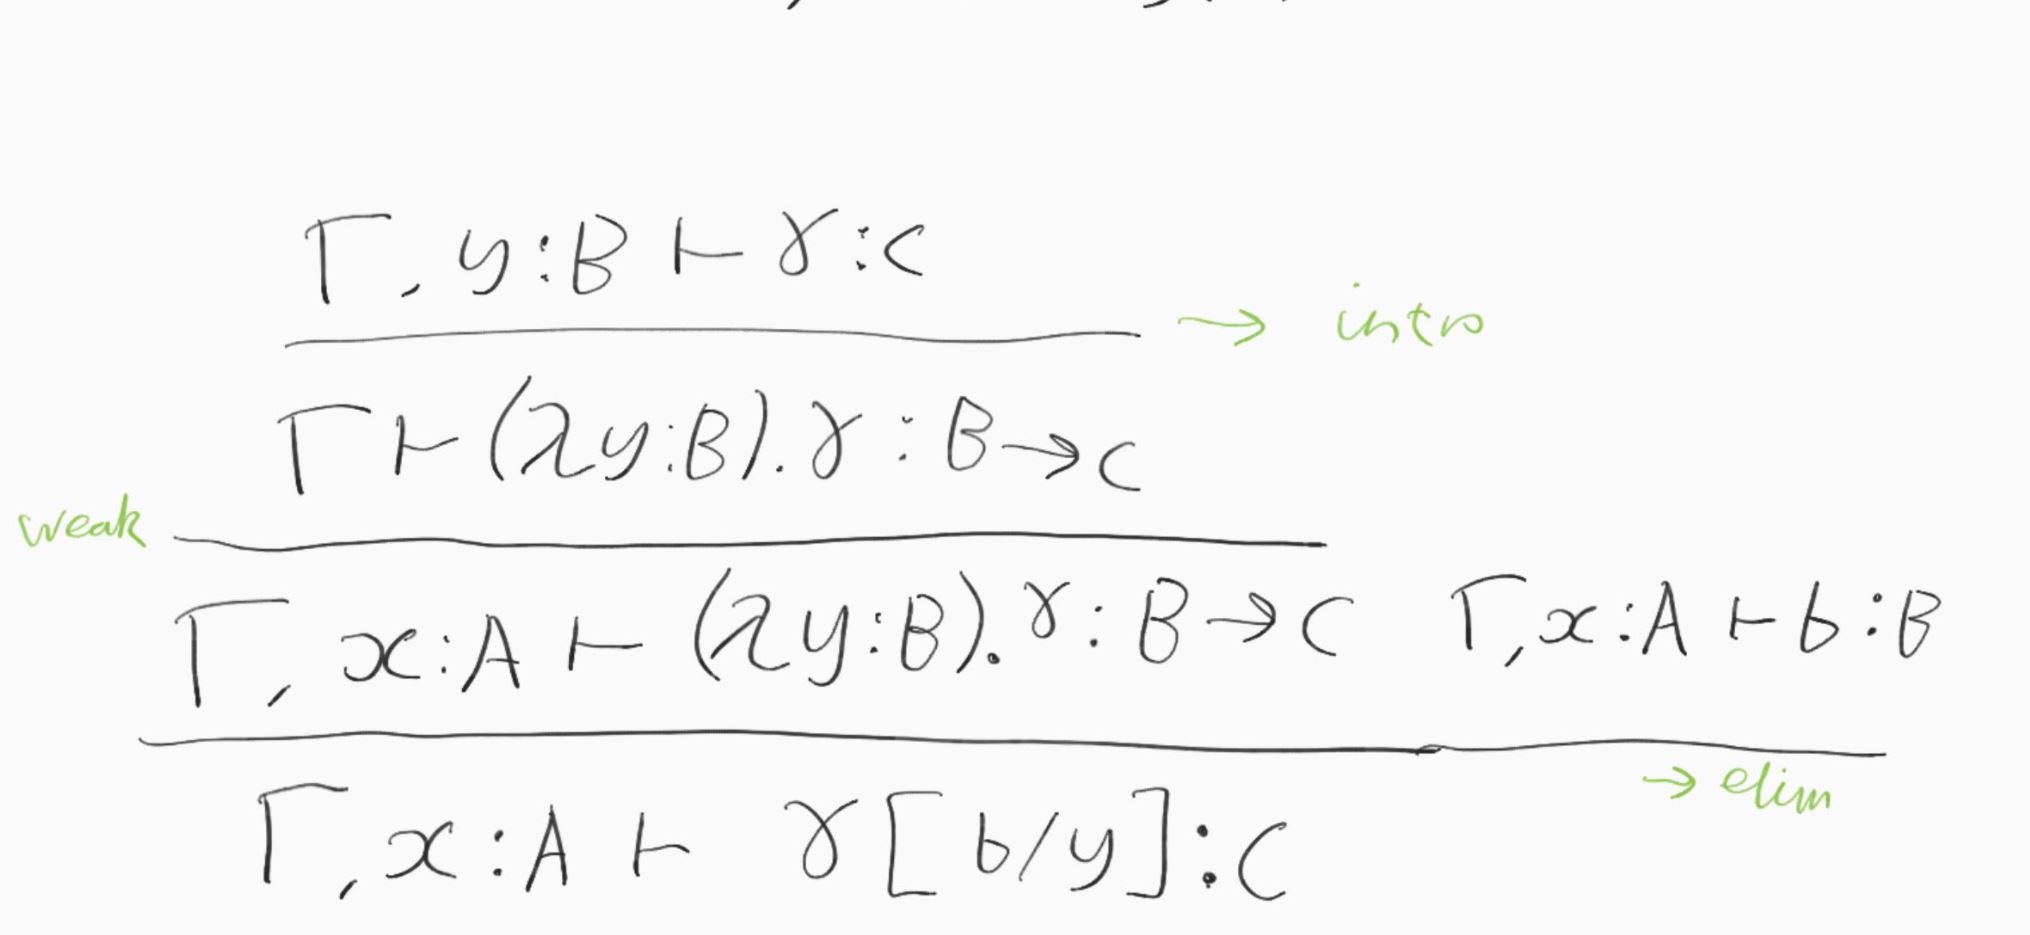 Γ, y:B ⊢ γ:C
→ intro
Γ ⊢ (λy:B).γ : B→C
weak
Γ, x:A ⊢ (λy:B).γ : B→C Γ,x:A ⊢ b:B
→ elim
Γ,x:A ⊢ γ[b/y]:C